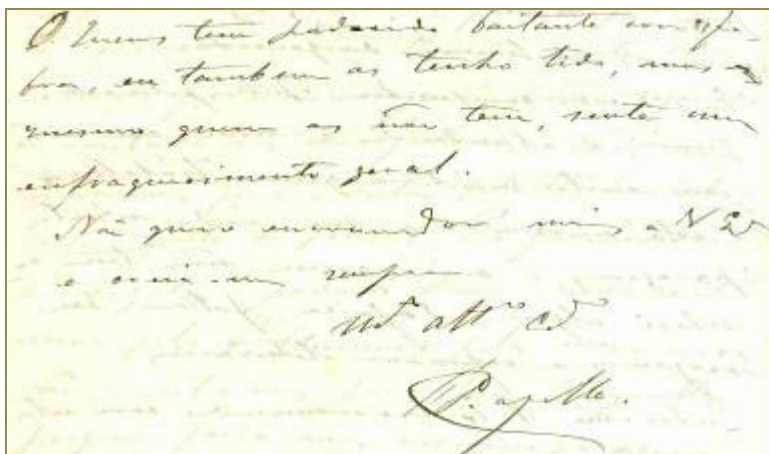 O Queus tem padecido bastante com as fe-
bres, eu tambem as tenho tido, mas
mesmo quem as não tem, sente um
enfraquecimento geral.
Não quero encommodar mais a V Ex
e creia-me sempre
att.º